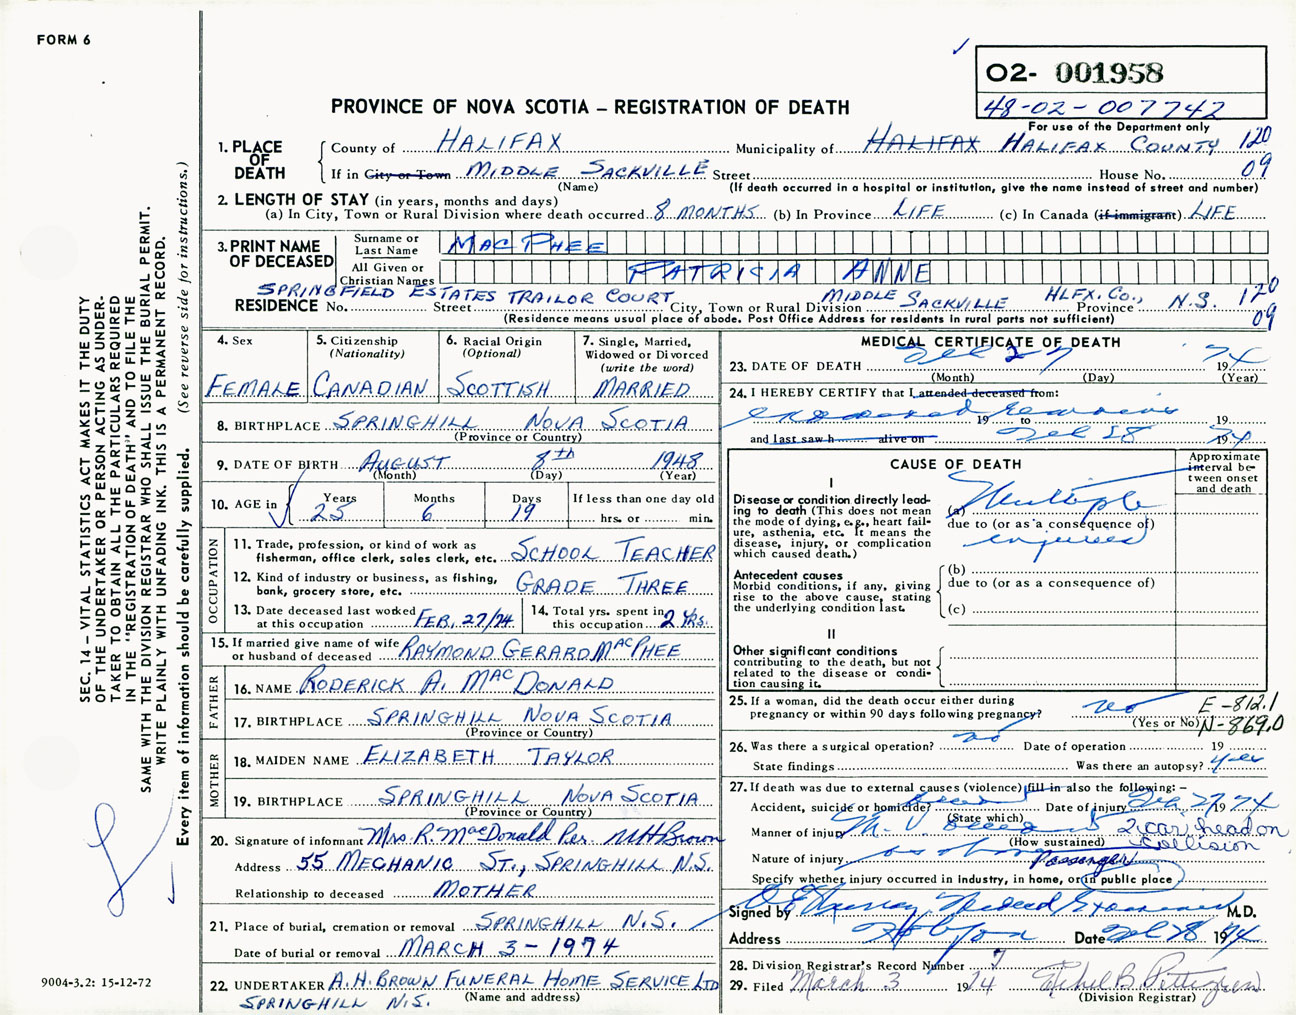 FORM 6
O2- 001958
48-02-007742
For use of the Department only
PROVINCE OF NOVA SCOTIA – REGISTRATION OF DEATH
SEC. 14 – VITAL STATISTICS ACT MAKES IT THE DUTY
OF THE UNDERTAKER OR PERSON ACTING AS UNDER-
TAKER TO OBTAIN ALL THE PARTICULARS REQUIRED
IN THE "REGISTRATION OF DEATH" AND TO FILE THE
SAME WITH THE DIVISION REGISTRAR WHO SHALL ISSUE THE BURIAL PERMIT.
WRITE PLAINLY WITH UNFADING INK. THIS IS A PERMANENT RECORD.
Every item of information should be carefully supplied. (See reverse side for instructions.)
1. PLACE OF DEATH
County of HALIFAX Municipality of HALIFAX HALIFAX COUNTY 120
If in City or Town MIDDLE SACKVILLE Street House No. 09
(Name) (If death occurred in a hospital or institution, give the name instead of street and number)
2. LENGTH OF STAY (in years, months and days)
(a) In City, Town or Rural Division where death occurred 8 MONTHS (b) In Province LIFE (c) In Canada (if immigrant) LIFE
3. PRINT NAME OF DECEASED
Surname or Last Name MAC PHEE
All Given or Christian Names PATRICIA ANNE
SPRINGFIELD ESTATES TRAILOR COURT MIDDLE SACKVILLE HLFX. CO., N.S. 120
RESIDENCE No. Street City, Town or Rural Division Province 09
(Residence means usual place of abode. Post Office Address for residents in rural parts not sufficient)
4. Sex
FEMALE
5. Citizenship
(Nationality)
CANADIAN
6. Racial Origin
(Optional)
SCOTTISH
7. Single, Married,
Widowed or Divorced
(write the word)
MARRIED
8. BIRTHPLACE SPRINGHILL NOVA SCOTIA
(Province or Country)
9. DATE OF BIRTH AUGUST 8th 1948
(Month) (Day) (Year)
10. AGE in Years Months Days If less than one day old
25 6 19 hrs. or min.
OCCUPATION
11. Trade, profession, or kind of work as
fisherman, office clerk, sales clerk, etc. SCHOOL TEACHER
12. Kind of industry or business, as fishing,
bank, grocery store, etc. GRADE THREE
13. Date deceased last worked
at this occupation FEB. 27/74
14. Total yrs. spent in
this occupation 2 YRS.
15. If married give name of wife
or husband of deceased RAYMOND GERARD MACPHEE
FATHER
16. NAME RODERICK A. MAC DONALD
17. BIRTHPLACE SPRINGHILL NOVA SCOTIA
(Province or Country)
MOTHER
18. MAIDEN NAME ELIZABETH TAYLOR
19. BIRTHPLACE SPRINGHILL NOVA SCOTIA
(Province or Country)
20. Signature of informant Mrs. R. MacDonald Per. M H Brown
Address 55 MECHANIC ST., SPRINGHILL N.S.
Relationship to deceased MOTHER
21. Place of burial, cremation or removal SPRINGHILL N.S.
Date of burial or removal MARCH 3 - 1974
22. UNDERTAKER A.H. BROWN FUNERAL HOME SERVICE LTD
SPRINGHILL N.S. (Name and address)
MEDICAL CERTIFICATE OF DEATH
23. DATE OF DEATH Feb 27 1974
(Month) (Day) (Year)
24. I HEREBY CERTIFY that I attended deceased from:
examined remains 19 to 19
and last saw h alive on Feb 28 1974
CAUSE OF DEATH
Approximate interval between onset and death
I
Disease or condition directly lead-
ing to death (This does not mean
the mode of dying, e.g., heart fail-
ure, asthenia, etc. It means the
disease, injury, or complication
which caused death.)
(a) Multiple
due to (or as a consequence of)
injuries
Antecedent causes
Morbid conditions, if any, giving
rise to the above cause, stating
the underlying condition last.
(b)
due to (or as a consequence of)
(c)
II
Other significant conditions
contributing to the death, but not
related to the disease or condi-
tion causing it.
25. If a woman, did the death occur either during
pregnancy or within 90 days following pregnancy? no
(Yes or No)
E-812.1
N-869.0
26. Was there a surgical operation? no Date of operation 19
State findings Was there an autopsy? yes
27. If death was due to external causes (violence) fill in also the following: –
Accident, suicide or homicide? Date of injury Feb 27 1974
(State which)
Manner of injury M.V. 2 car head on
(How sustained) Collision
Nature of injury as above Passenger
Specify whether injury occurred in industry, in home, or in public place
Signed by Murray Medical Examiner M.D.
Address Date Feb 28 1974
28. Division Registrar's Record Number 7
29. Filed March 3 1974 Ethel B. Pettigrew
(Division Registrar)
9004-3.2: 15-12-72